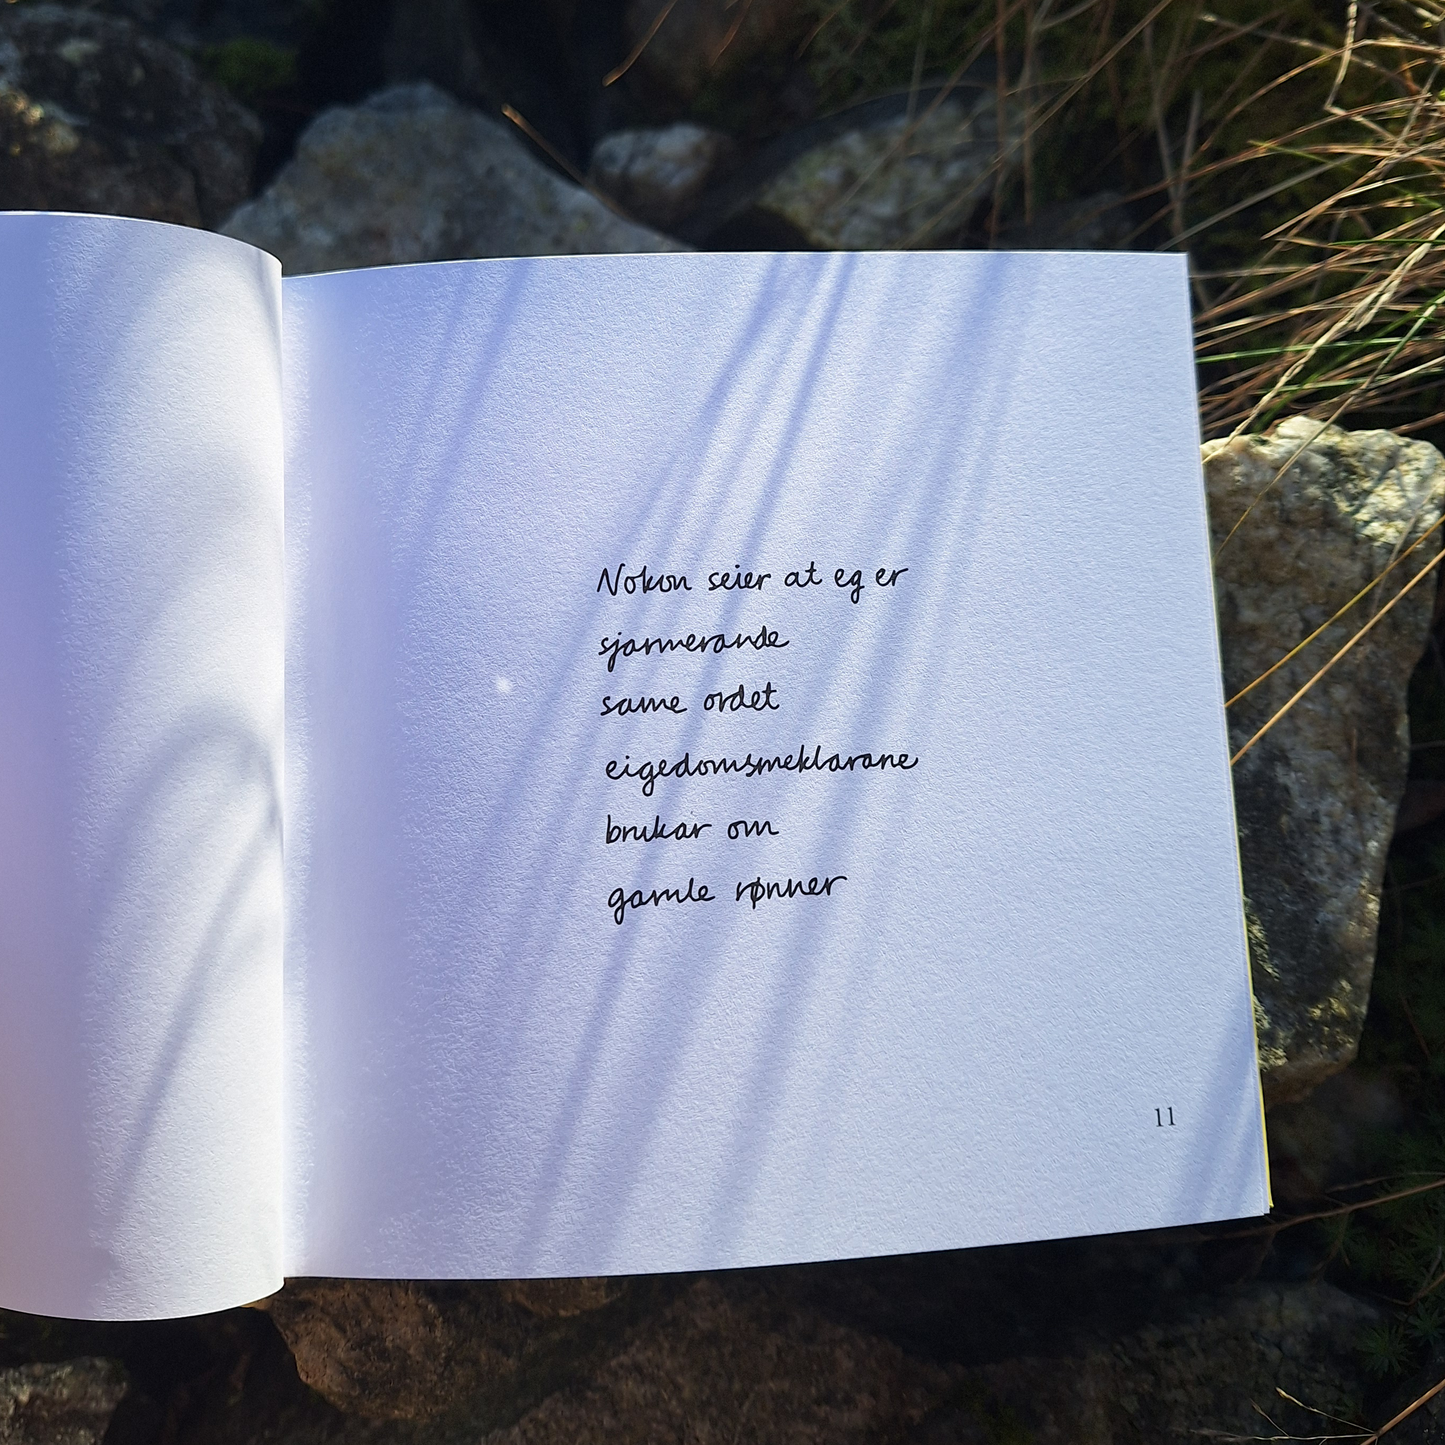 Nokon seier at eg er
sjarmerande
same ordet
eigedomsmeklarane
brukar om
gamle rønner
11